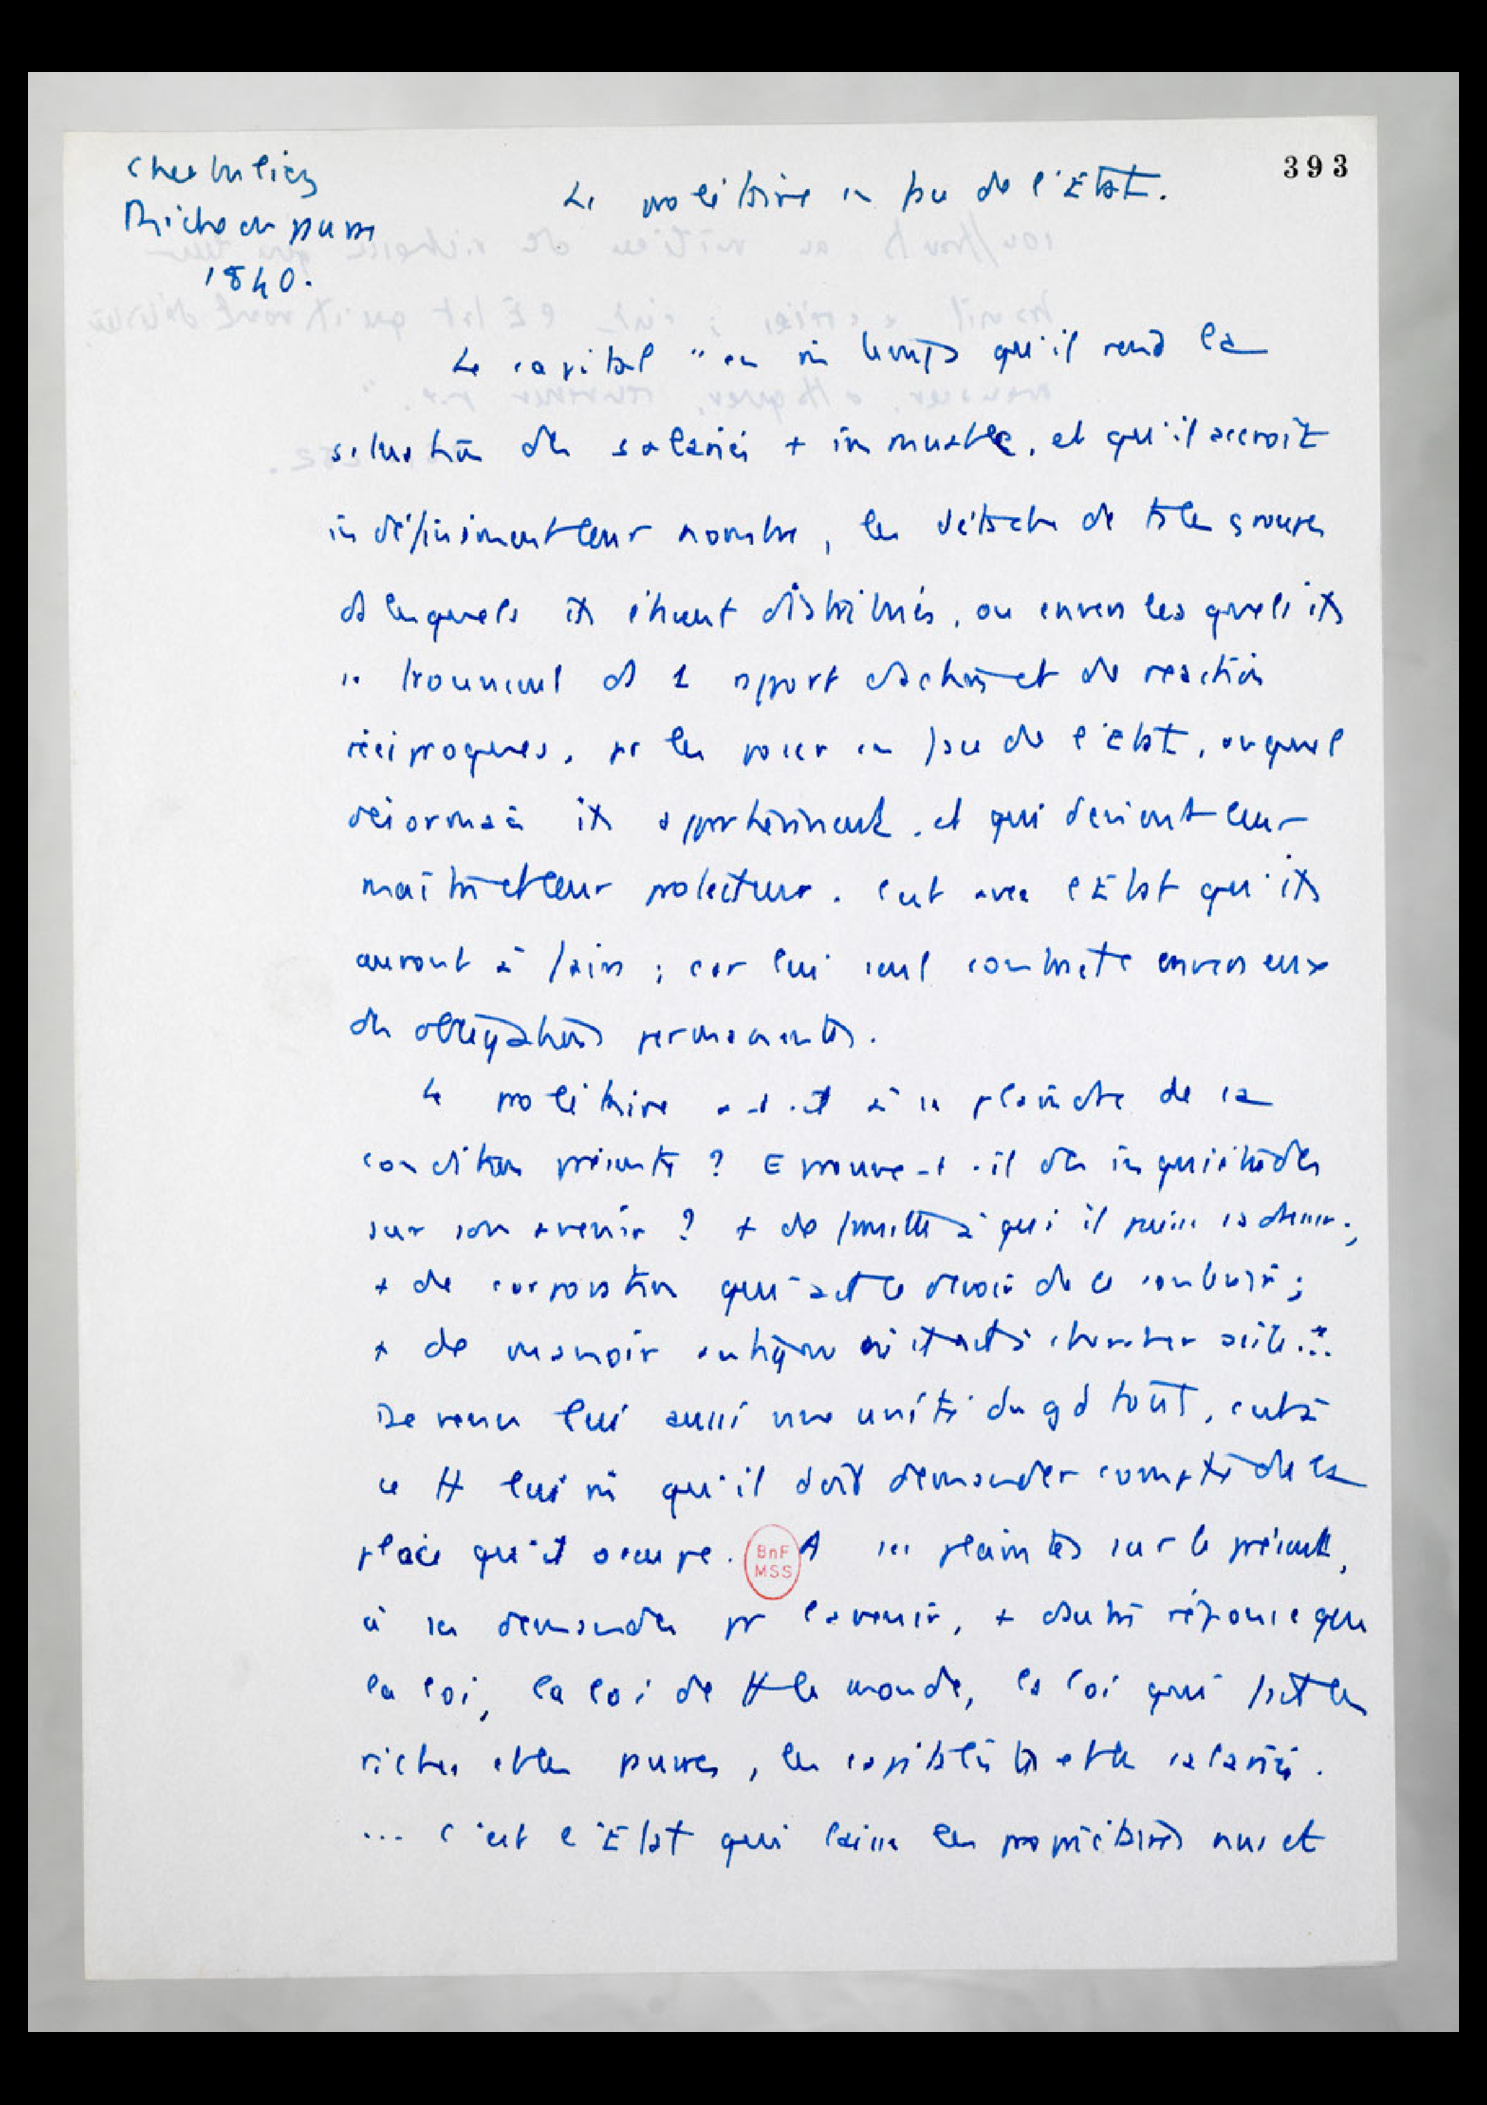 Cherbuliez
Riche ou pauvre
1840.
393
Le prolétaire en face de l'Etat.
Le capital "en m temps qu'il rend la
situation des salariés + immuable, et qu'il accroît
indéfiniment leur nombre, les détache de ts les groupes
ds lesquels ils étaient distribués, ou envers lesquels ils
se trouvaient ds 1 rapport d'action et de réaction
réciproques, pr les poser en face de l'Etat, auquel
désormais ils appartiennent, et qui devient leur
maître et leur protecteur. C'est avec l'Etat qu'ils
auront à faire ; car lui seul contracte envers eux
des obligations permanentes.
Le prolétaire a-t-il à se plaindre de sa
condition présente ? Eprouve-t-il des inquiétudes
sur son avenir ? + de famille à qui il puisse s'adresser ;
+ de corporation qui ait le devoir de le soutenir ;
+ de manoir antique où il aille chercher asile...
Devenu lui aussi une unité du gd tout, c'est à
ce tt lui m qu'il doit demander compte de la
place qu'il occupe. BnF MSS A ses plaintes sur le présent,
à ses demandes pr l'avenir, + d'autre réponse que
la loi, la loi de tt le monde, la loi qui fait les
riches et les pauvres, les capitalistes et les salariés.
... C'est l'Etat qui laisse les prolétaires nus et